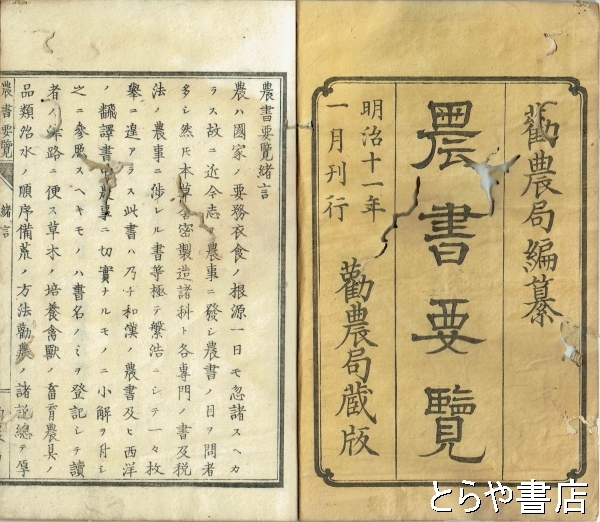 勸農局編纂
農書要覽
明治十一年
一月刊行
勸農局蔵版
農書要覽緒言
農ハ國家ノ要務衣食ノ根源一日モ忽諸スヘカ
ラス故ニ近今志ヲ農事ニ發シ農書ノ目ヲ問者
多シ然𪜈本草舎密製造諸科ト各專門ノ書及税
法ノ農事ニ涉レル書等極テ繁浩ニシテ一々枚
擧ニ遑アラス此書ハ乃チ和漢ノ農書及ヒ西洋
ノ飜譯書中農事ニ切實ナルモノニ小解ヲ付シ
之ニ參照スヘキモノハ書名ノミヲ登記シテ讀
者ノ路ニ便ス草木ノ培養禽獸ノ畜育農具ノ
品類治水ノ順序備荒ノ方法勸農ノ諸説總テ
農書要覽
緒言
とらや書店